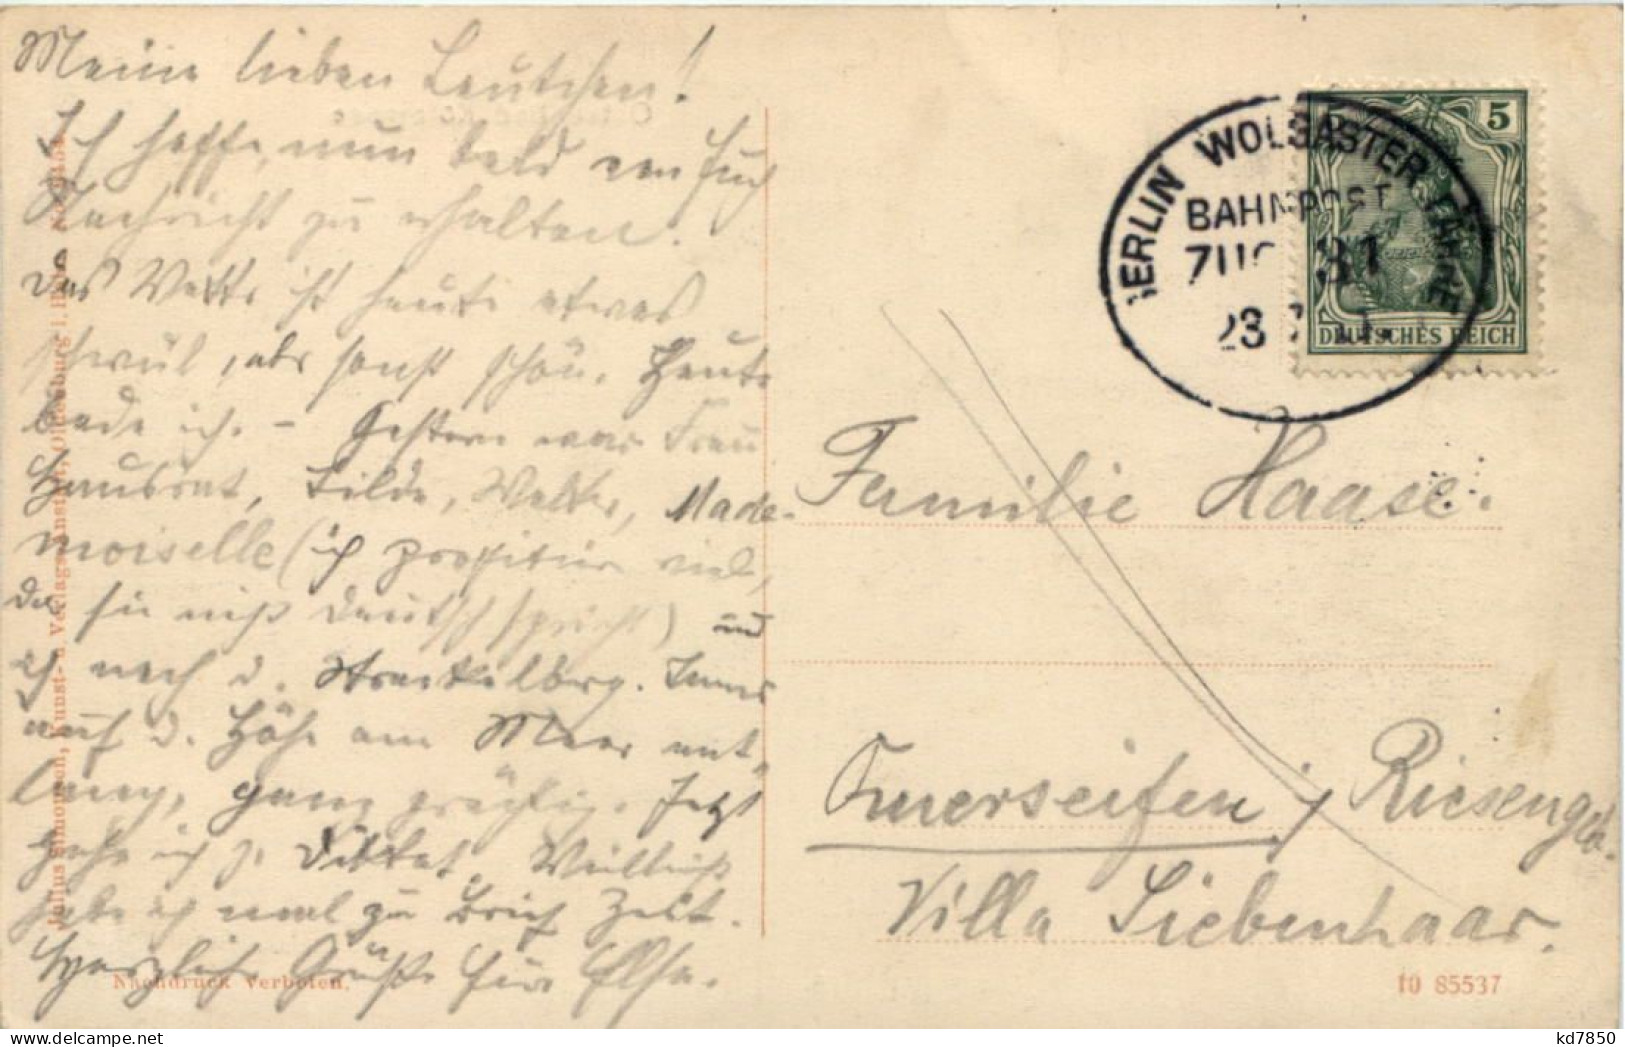 Meine lieben Leutchen!
Ich hoffe, nun bald von Euch
Nachricht zu erhalten.
Das Wetter ist heute etwas
schwül, aber sonst schön. Heute
bade ich. – Gestern war Frau
Hausrat, Hilde, Walter, Made-
moiselle (ich profitiere viel,
da sie nicht deutsch spricht) und
ich nach d. Streckelberg. Immer
auf d. Höhe am Meer ent-
lang, ganz prächtig. Jetzt
gehe ich z. Diktat. Vielleicht
habe ich mal zu Brief Zeit.
Herzliche Grüße Eure Else.
Julius Simonsen, Kunst- u. Verlagsanstalt, Oldenburg i. Holst.
Nachdruck verboten.
BERLIN WOLGASTER FÄHRE
BAHNPOST
ZUG 31
23
5
DEUTSCHES REICH
Familie Haase.
Querseifen, Riesengeb.
Villa Siebenhaar.
10 85537
kd7850